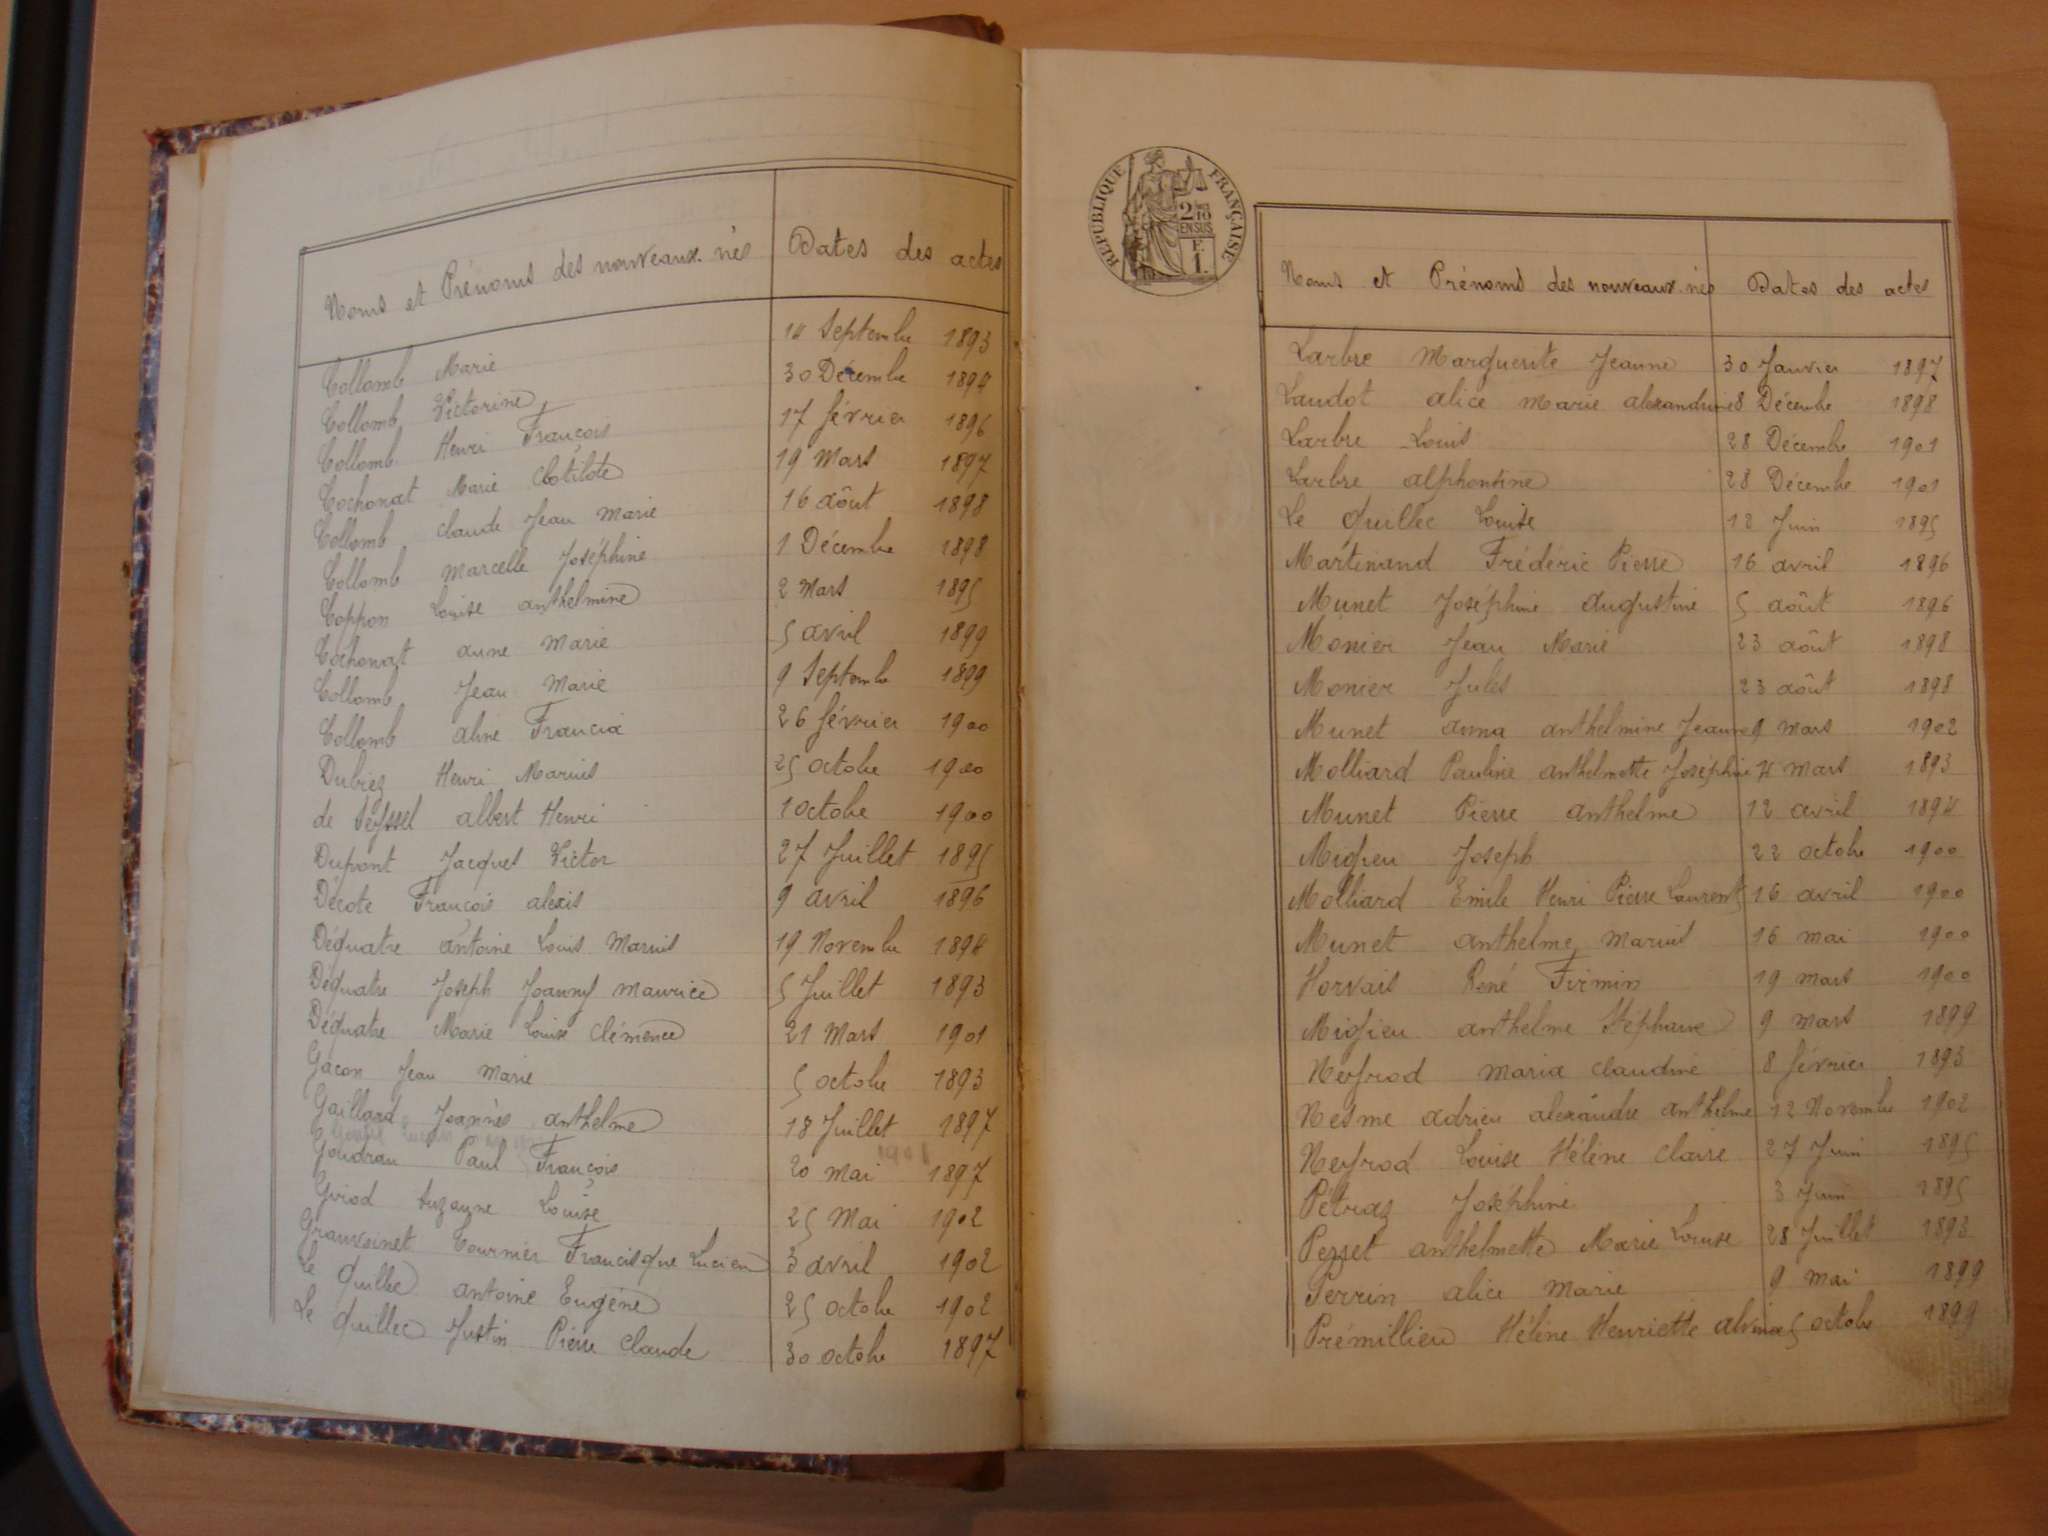 Noms et Prénoms des nouveaux nés Dates des actes
Collomb Marie 14 Septembre 1893
Collomb Victorine 30 Décembre 1894
Collomb Henri François 17 février 1896
Cochonat Marie Clotilde 19 Mars 1897
Collomb Claude Jean Marie 16 août 1898
Collomb Marcelle Joséphine 1 Décembre 1898
Coppon Louise anthelmine 2 Mars 1895
Cochonat anne Marie 5 avril 1899
Collomb Jean Marie 9 Septembre 1899
Collomb aline Francia 26 février 1900
Dubiez Henri Marius 25 octobre 1900
de Seyssel albert Henri 1 octobre 1900
Dupont Jacques Victor 27 Juillet 1895
Décote François alexis 9 avril 1896
Déquatre antoine Louis Marius 19 Novembre 1894
Déquatre Joseph Joanny Maurice 5 Juillet 1893
Déquatre Marie Louise Clémence 21 Mars 1901
Gacon Jean Marie 5 octobre 1893
Gaillard Joannès anthelme 18 Juillet 1897
Goudran Paul François 20 mai 1897
Guiod Suzanne Louise 25 Mai 1902
Granvoinet Tournier Francisque Lucien 3 avril 1902
Le Quillec antoine Eugène 25 octobre 1902
Le Quillec Justin Pierre Claude 30 octobre 1897
REPUBLIQUE FRANÇAISE
2/10
EN SUS
F.
1.
Noms et Prénoms des nouveaux nés Dates des actes
Larbre Marguerite Jeanne 30 Janvier 1897
Laudot alice Marie alexandrine 8 Décembre 1898
Larbre Louis 28 Décembre 1901
Larbre alphonsine 28 Décembre 1901
Le Quillec Louise 12 Juin 1895
Martinand Frédéric Pierre 16 avril 1896
Munet Joséphine augustine 5 août 1896
Monier Jean Marie 23 août 1898
Monier Jules 23 août 1898
Munet anna anthelmine Jeanne 9 mars 1902
Molliard Pauline anthelmette Joséphine mars 1893
Munet Pierre anthelme 12 avril 1894
Migieu Joseph 22 octobre 1900
Molliard Emile Henri Pierre Laurent 16 avril 1900
Munet anthelme Marius 16 mai 1900
Horvais René Firmin 19 mars 1900
Migieu anthelme Stéphane 9 mars 1899
Neyrod maria Claudine 8 février 1893
Nesme adrien alexandre anthelme 12 Novembre 1902
Neyrod Louise Hélène Claire 27 Juin 1895
Pétraz Joséphine 3 Juin 1895
Perret anthelmette Marie Louise 28 Juillet 1893
Perrin alice Marie 9 mai 1899
Prémillieu Hélène Henriette alvina 5 octobre 1899